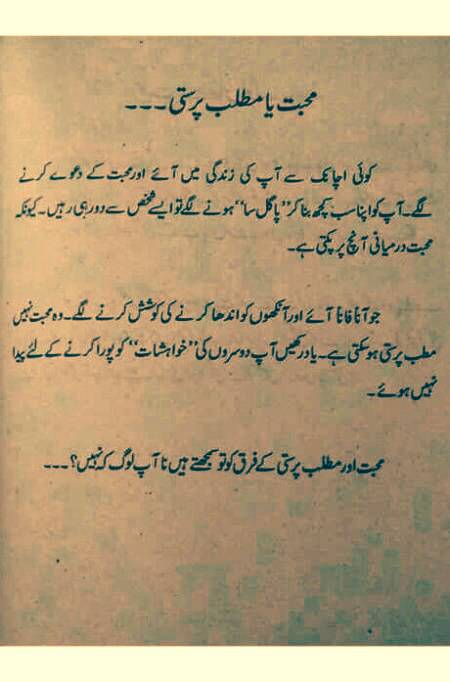 محبت یا مطلب پرستی ۔۔۔
کوئی اچانک سے آپ کی زندگی میں آئے اور محبت کے دعوے کرنے
لگے۔ آپ کو اپنا سب کچھ بنا کر "پاگل سا" ہونے لگے تو ایسے شخص سے دور ہی رہیں۔ کیونکہ
محبت درمیانی آنچ پر پکتی ہے۔
جو آناً فاناً آئے اور آنکھوں کو اندھا کرنے کی کوشش کرنے لگے۔ وہ محبت نہیں
مطب پرستی ہو سکتی ہے۔ یاد رکھیں آپ دوسروں کی "خواہشات" کو پورا کرنے کے لئے پیدا
نہیں ہوئے۔
محبت اور مطلب پرستی کے فرق کو تو سمجھتے ہیں نا آپ لوگ کہ نہیں؟۔۔۔